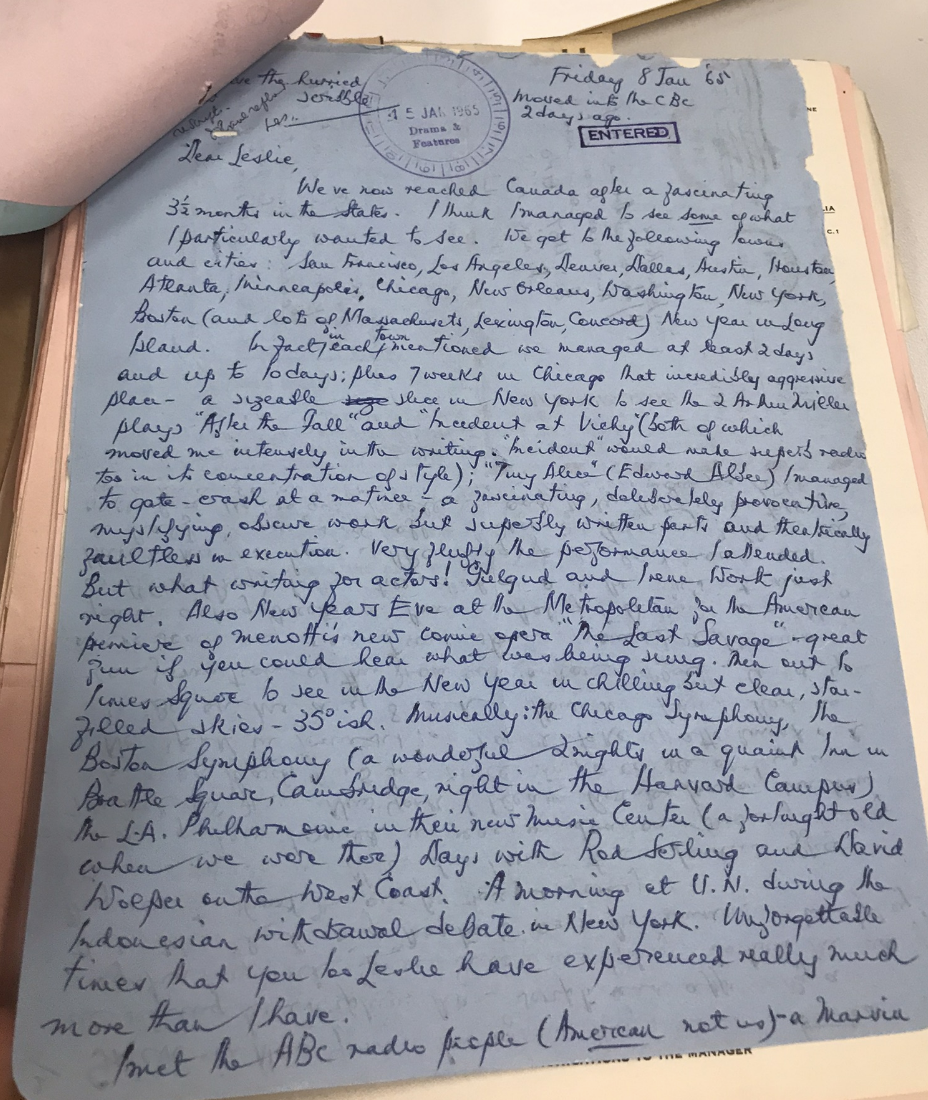 the hurried
scribble
Friday 8 Jan '65
moved into the CBC
2 days ago.
15 JAN 1965
Drama &
Features
ENTERED
Dear Leslie,
We've now reached Canada after a fascinating
3½ months in the States. I think I managed to see some of what
I particularly wanted to see. We got to the following towns
and cities: San Francisco, Los Angeles, Denver, Dallas, Austin, Houston,
Atlanta, Minneapolis, Chicago, New Orleans, Washington, New York,
Boston (and lots of Massachusets, Lexington, Concord) New Year in Long
Island. In fact in each town mentioned we managed at least 2 days
and up to 10 days; plus 7 weeks in Chicago that incredibly aggressive
place - a sizeable slice in New York to see the 2 Arthur Miller
plays "After the Fall" and "Incident at Vichy" (both of which
moved me intensely in the writing. "Incident" would make superb radio
too in its concentration of style); "Tiny Alice" (Edward Albee) I managed
to gate-crash at a matinee - a fascinating, deliberately provocative,
mystifying, obscure work but superbly written parts and theatrically
faultless in execution. Very fluffy the performance I attended.
But what writing for actors! Gielgud and Irene Worth just
right. Also New Years Eve at the Metropolitan for the American
premiere of Menotti's new comic opera "The Last Savage" - great
fun if you could hear what was being sung. Then out to
Times Square to see in the New Year in chilling but clear, star-
filled skies - 35° ish. Musically: the Chicago Symphony, the
Boston Symphony (a wonderful 2 nights in a quaint Inn in
Brattle Square, Cambridge, right in the Harvard Campus)
the L.A. Philharmonic in their new Music Center (a fortnight old
when we were there) Days with Rod Serling and David
Wolper on the West Coast. A morning at U.N. during the
Indonesian withdrawal debate in New York. Unforgettable
times that you too Leslie have experienced really much
more than I have.
I met the ABC radio people (American not us) - a Marvin
TO THE MANAGER